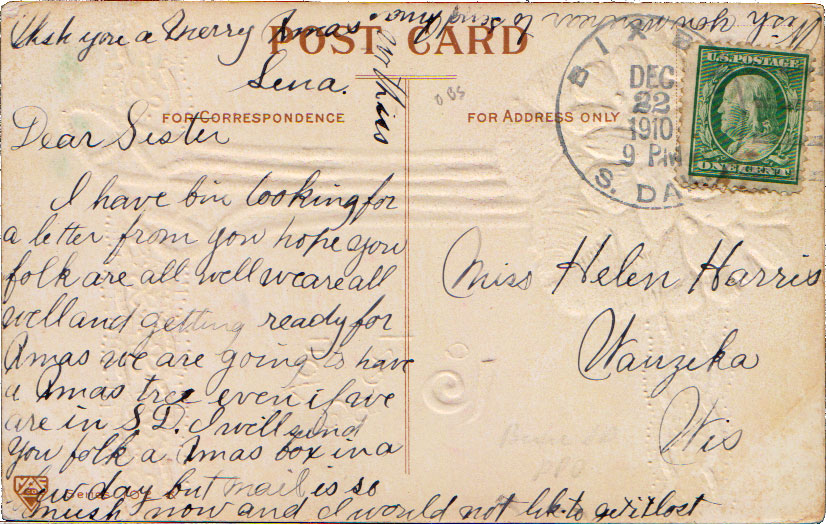 POST CARD
Wish you a Merry Xmas
Lena.
FOR CORRESPONDENCE
FOR ADDRESS ONLY
OBS
BIXB
DEC
22
1910
9 PM
S. DA
U.S. POSTAGE
ONE CENT
Dear Sister
I have bin looking for
a letter from you hope you
folk are all well we are all
well and getting ready for
Xmas we are going to have
a Xmas tree even if we
are in S.D. I will send
you folk a Xmas box in a
few day but mail is so
mush now and I would not lik to get it lost
Miss Helen Harris
Wauzeka
Wis
Series